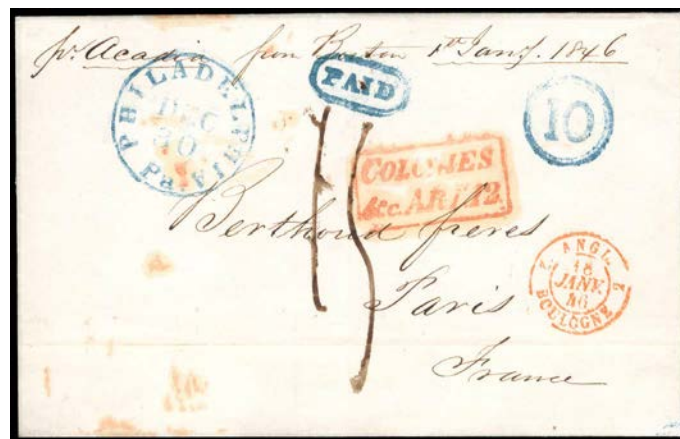 pr. Acadia from Boston 1st Jany. 1846
PHILADELPHIA Pa.
DEC
30
PAID
10
COLONIES
&c. ART 12
15
Berthoud freres
Paris
France
ANGL.
18
JANV
46
BOULOGNE
2 2